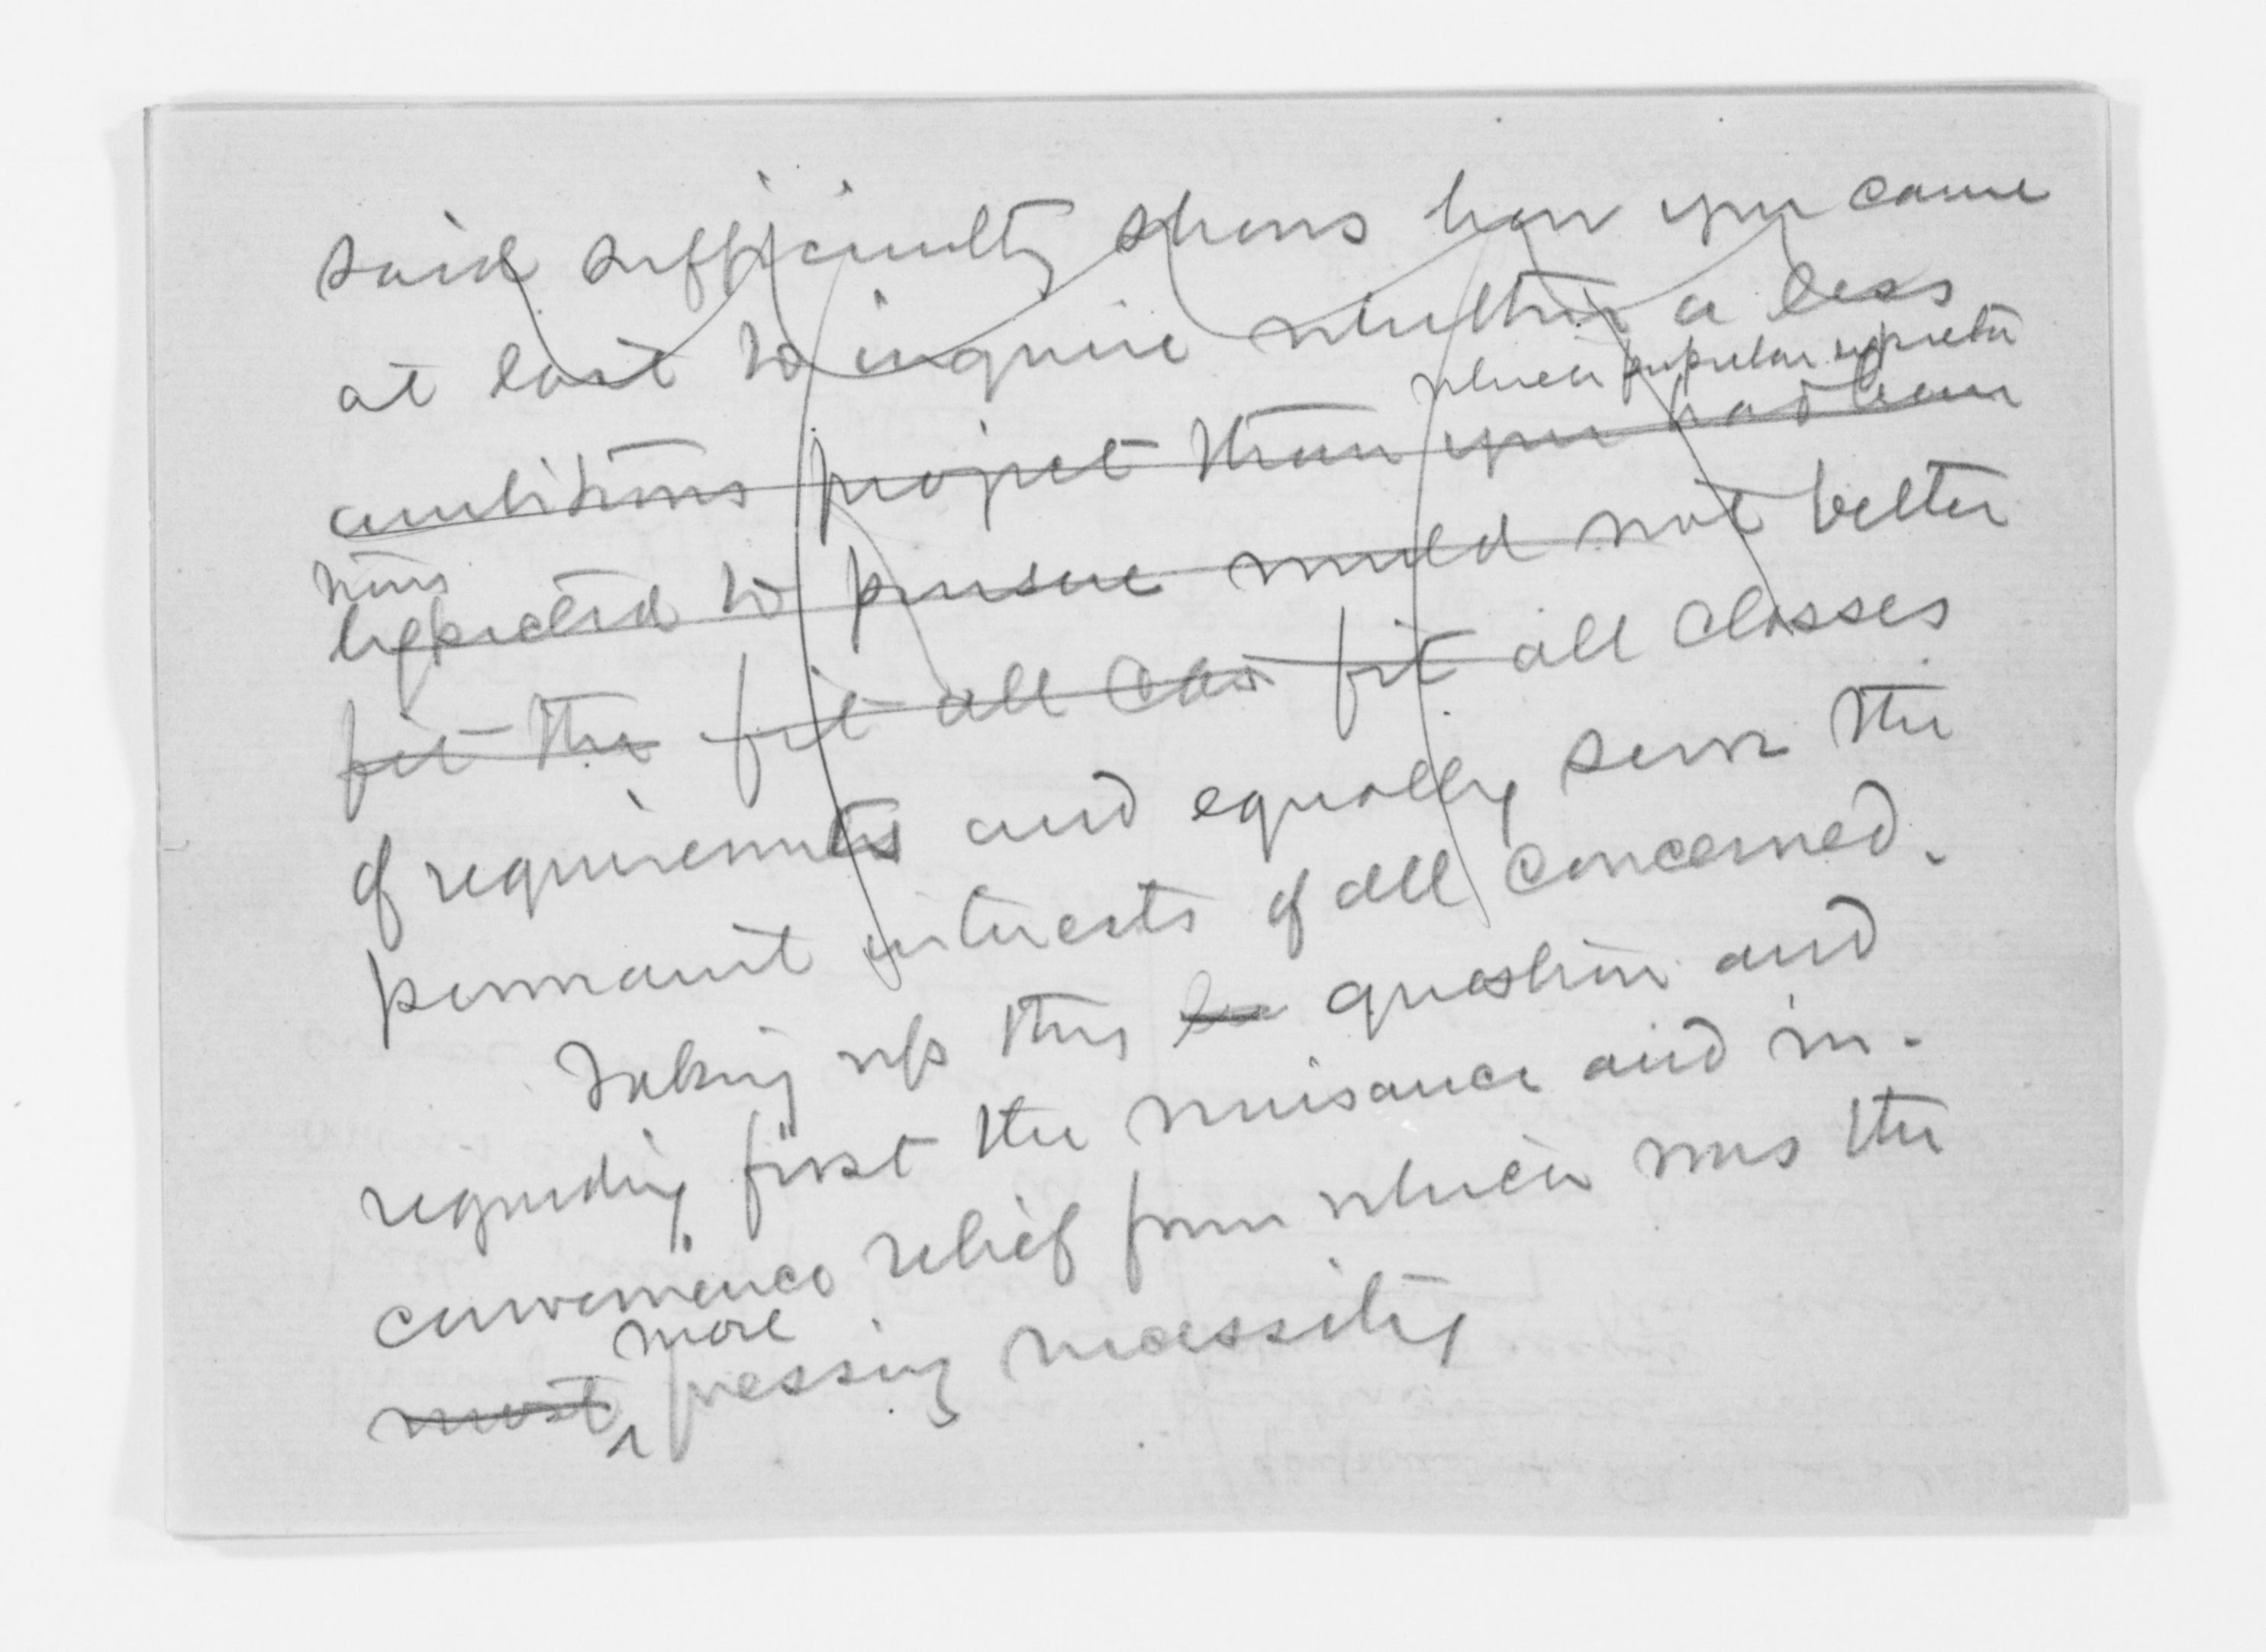 said sufficiently shows how you came
at last to inquire whether a less
which popular
ambitious project than you had been
expected to pursue would not better
fit the fit all clas fit all classes
of requirements and equally serve the
permanent interests of all concerned.
Taking up this question and
regarding first the nuisance and in-
convenience relief from which was the
more
most pressing necessity